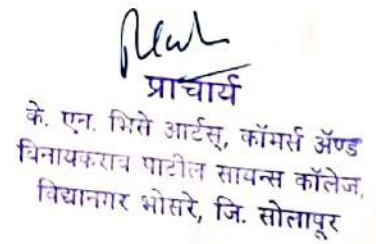 प्राचार्य
के. एन. भिसे आर्टस्, कॉमर्स अ‍ॅण्ड
विनायकराव पाटील सायन्स कॉलेज,
विद्यानगर भोसरे, जि. सोलापूर